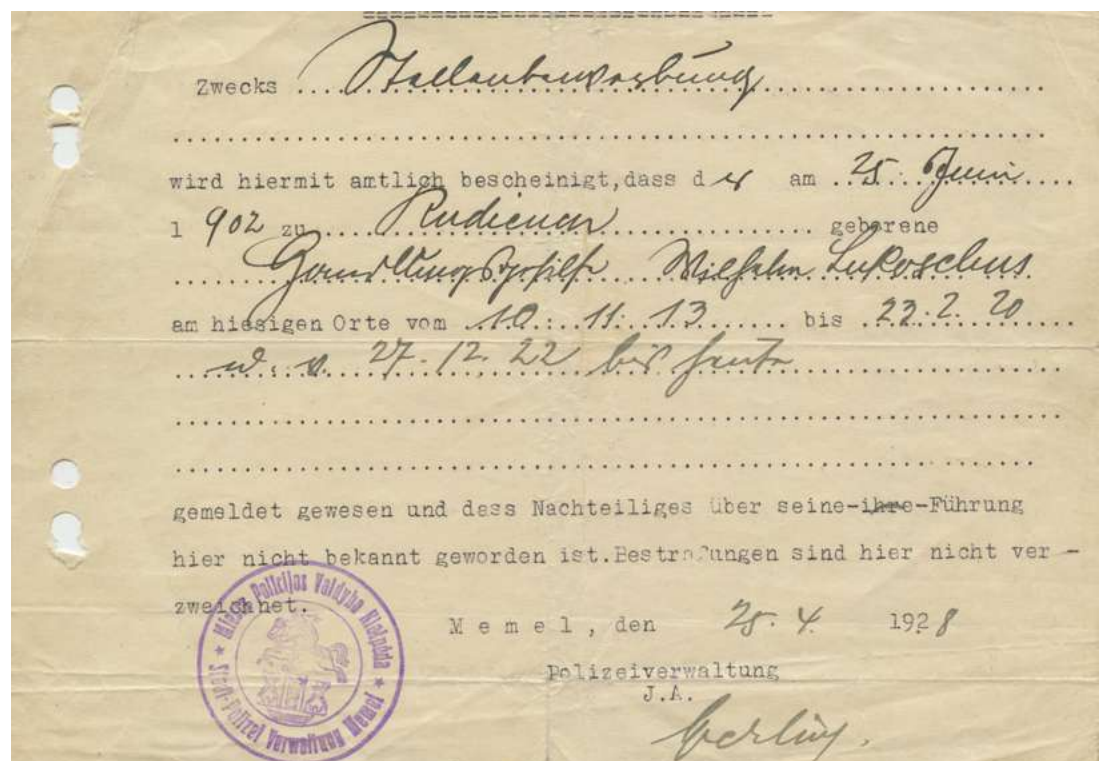 Zwecks ....Stellenbewerbung....
wird hiermit amtlich bescheinigt,dass der am ..25. Juni....
1 902 zu .... ........ geborene
........Handlungsgehilfe Wilhelm Lukoschus
am hiesigen Orte vom ..10. 11. 13...... bis ..22. 2. 20
...u. v. 27. 12. 22 bis heute
gemeldet gewesen und dass Nachteiliges über seine-ihre-Führung
hier nicht bekannt geworden ist.Bestrafungen sind hier nicht ver -
zweichnet.
Memel, den 25. 4. 1928
Polizeiverwaltung
J.A.
★ Miesto Policijos Valdyba Klaipėda ★
Stadt-Polizei Verwaltung Memel